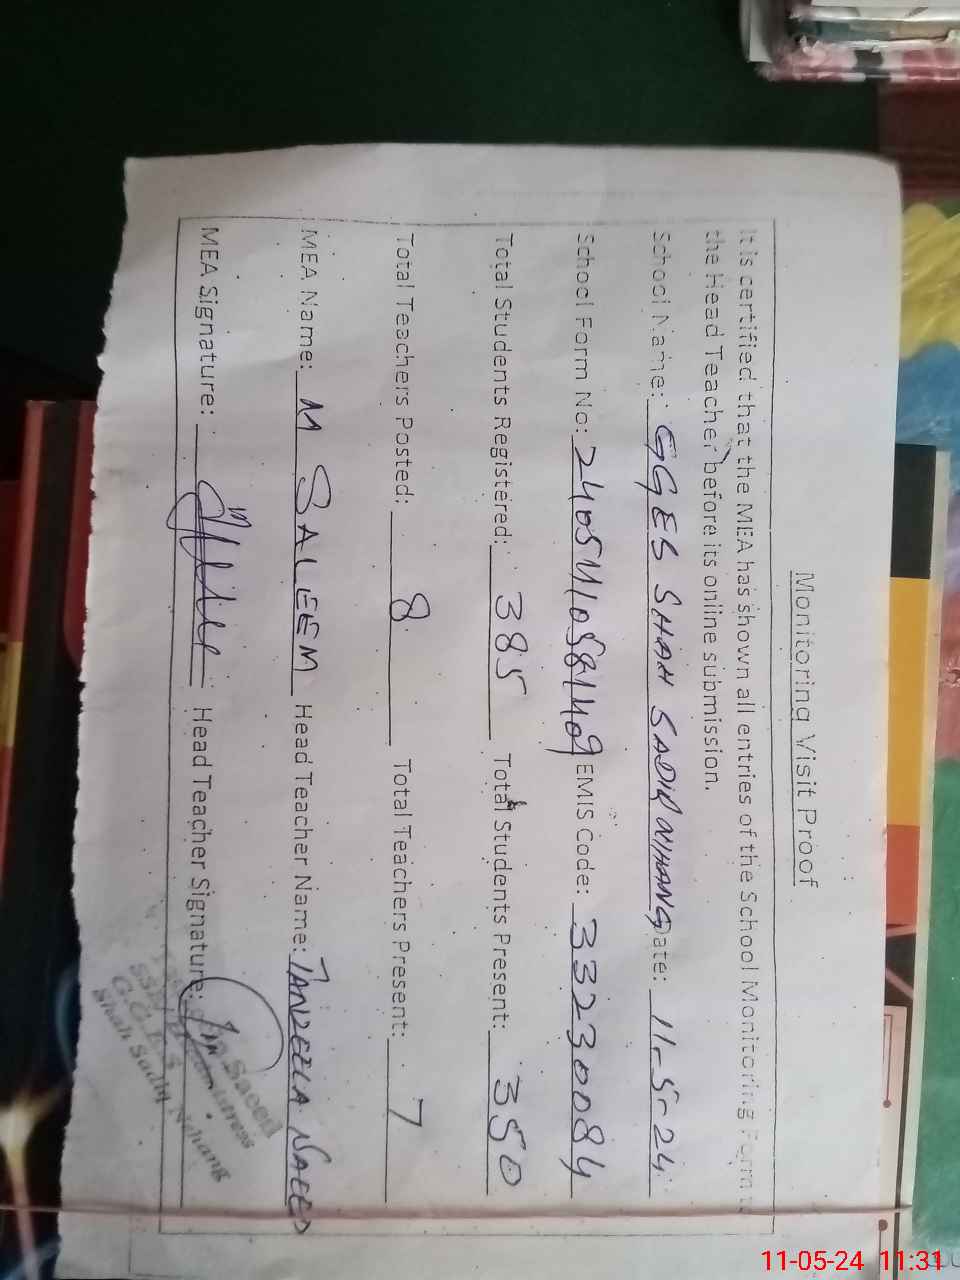 Monitoring Visit Proof
It is certified that the MEA has shown all entries of the School Monitoring Form to
the Head Teacher before its online submission.
School Name: GGES SHAH SADIQ NIHANG Date: 11-5-24
School Form No: 2405410581409 EMIS Code: 33230084
Total Students Registered: 385 Total Students Present: 350
Total Teachers Posted: 8 Total Teachers Present: 7
MEA Name: M SALEEM Head Teacher Name: TANZEELA SAEED
MEA Signature: Head Teacher Signature:
Saeed
G.G.E.S
Shah Sadiq Nihang
11-05-24 11:31